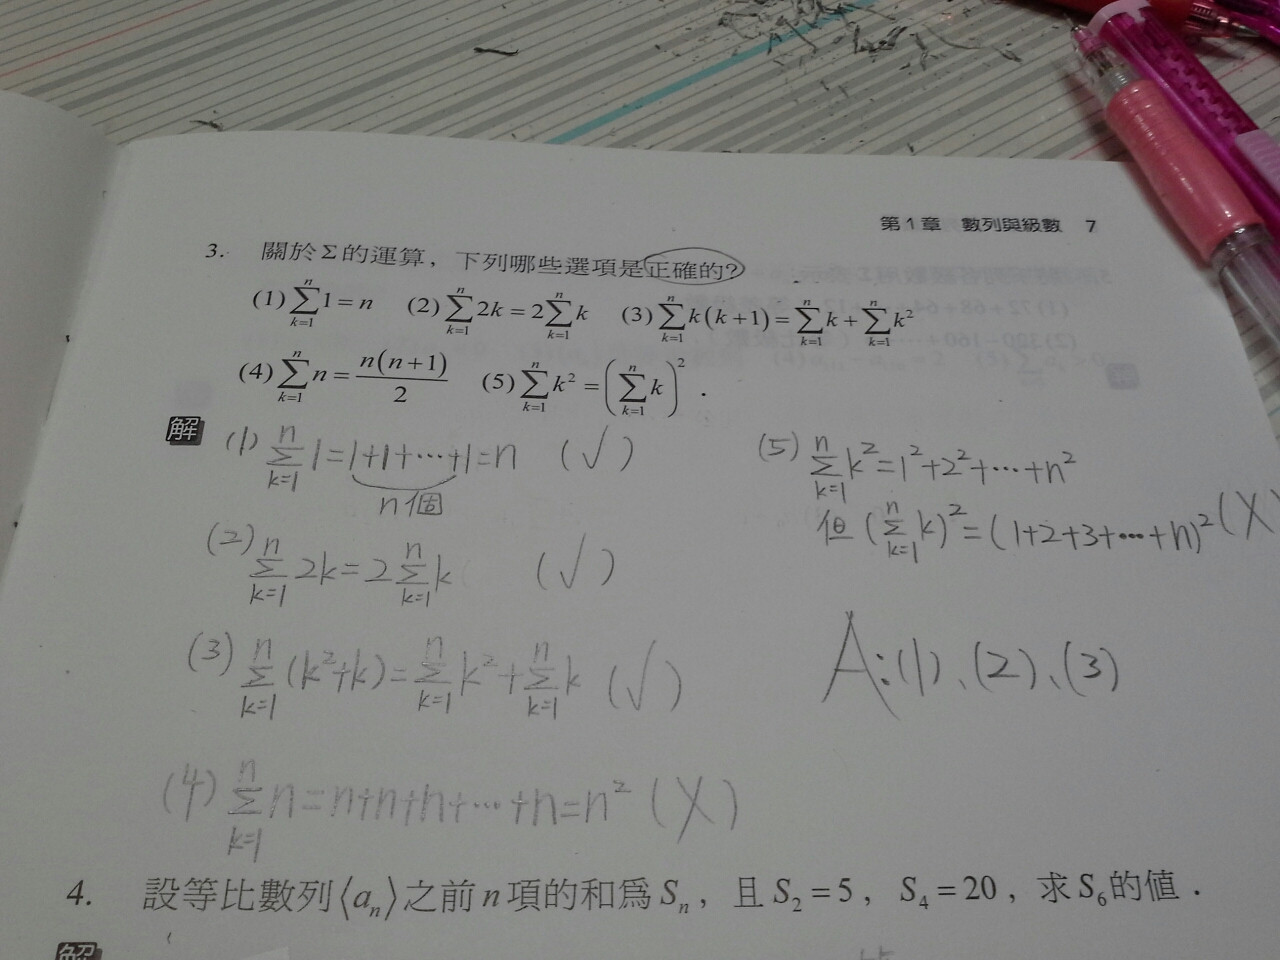 第1章 數列與級數 7
3. 關於Σ的運算，下列哪些選項是正確的?
(1) \sum_{k=1}^{n} 1 = n (2) \sum_{k=1}^{n} 2k = 2\sum_{k=1}^{n} k (3) \sum_{k=1}^{n} k(k+1) = \sum_{k=1}^{n} k + \sum_{k=1}^{n} k^2
(4) \sum_{k=1}^{n} n = \frac{n(n+1)}{2} (5) \sum_{k=1}^{n} k^2 = \left(\sum_{k=1}^{n} k\right)^2 .
解
(1) \sum_{k=1}^{n} 1 = 1+1+⋯+1 = n (√)
n個
(2) \sum_{k=1}^{n} 2k = 2\sum_{k=1}^{n} k (√)
(3) \sum_{k=1}^{n} (k^2+k) = \sum_{k=1}^{n} k^2 + \sum_{k=1}^{n} k (√)
(4) \sum_{k=1}^{n} n = n+n+n+⋯+n = n^2 (X)
(5) \sum_{k=1}^{n} k^2 = 1^2+2^2+⋯+n^2
但 (\sum_{k=1}^{n} k)^2 = (1+2+3+⋯+n)^2 (X)
A:(1)、(2)、(3)
4. 設等比數列⟨a_n⟩之前n項的和為S_n，且S_2=5，S_4=20，求S_6的值．
解